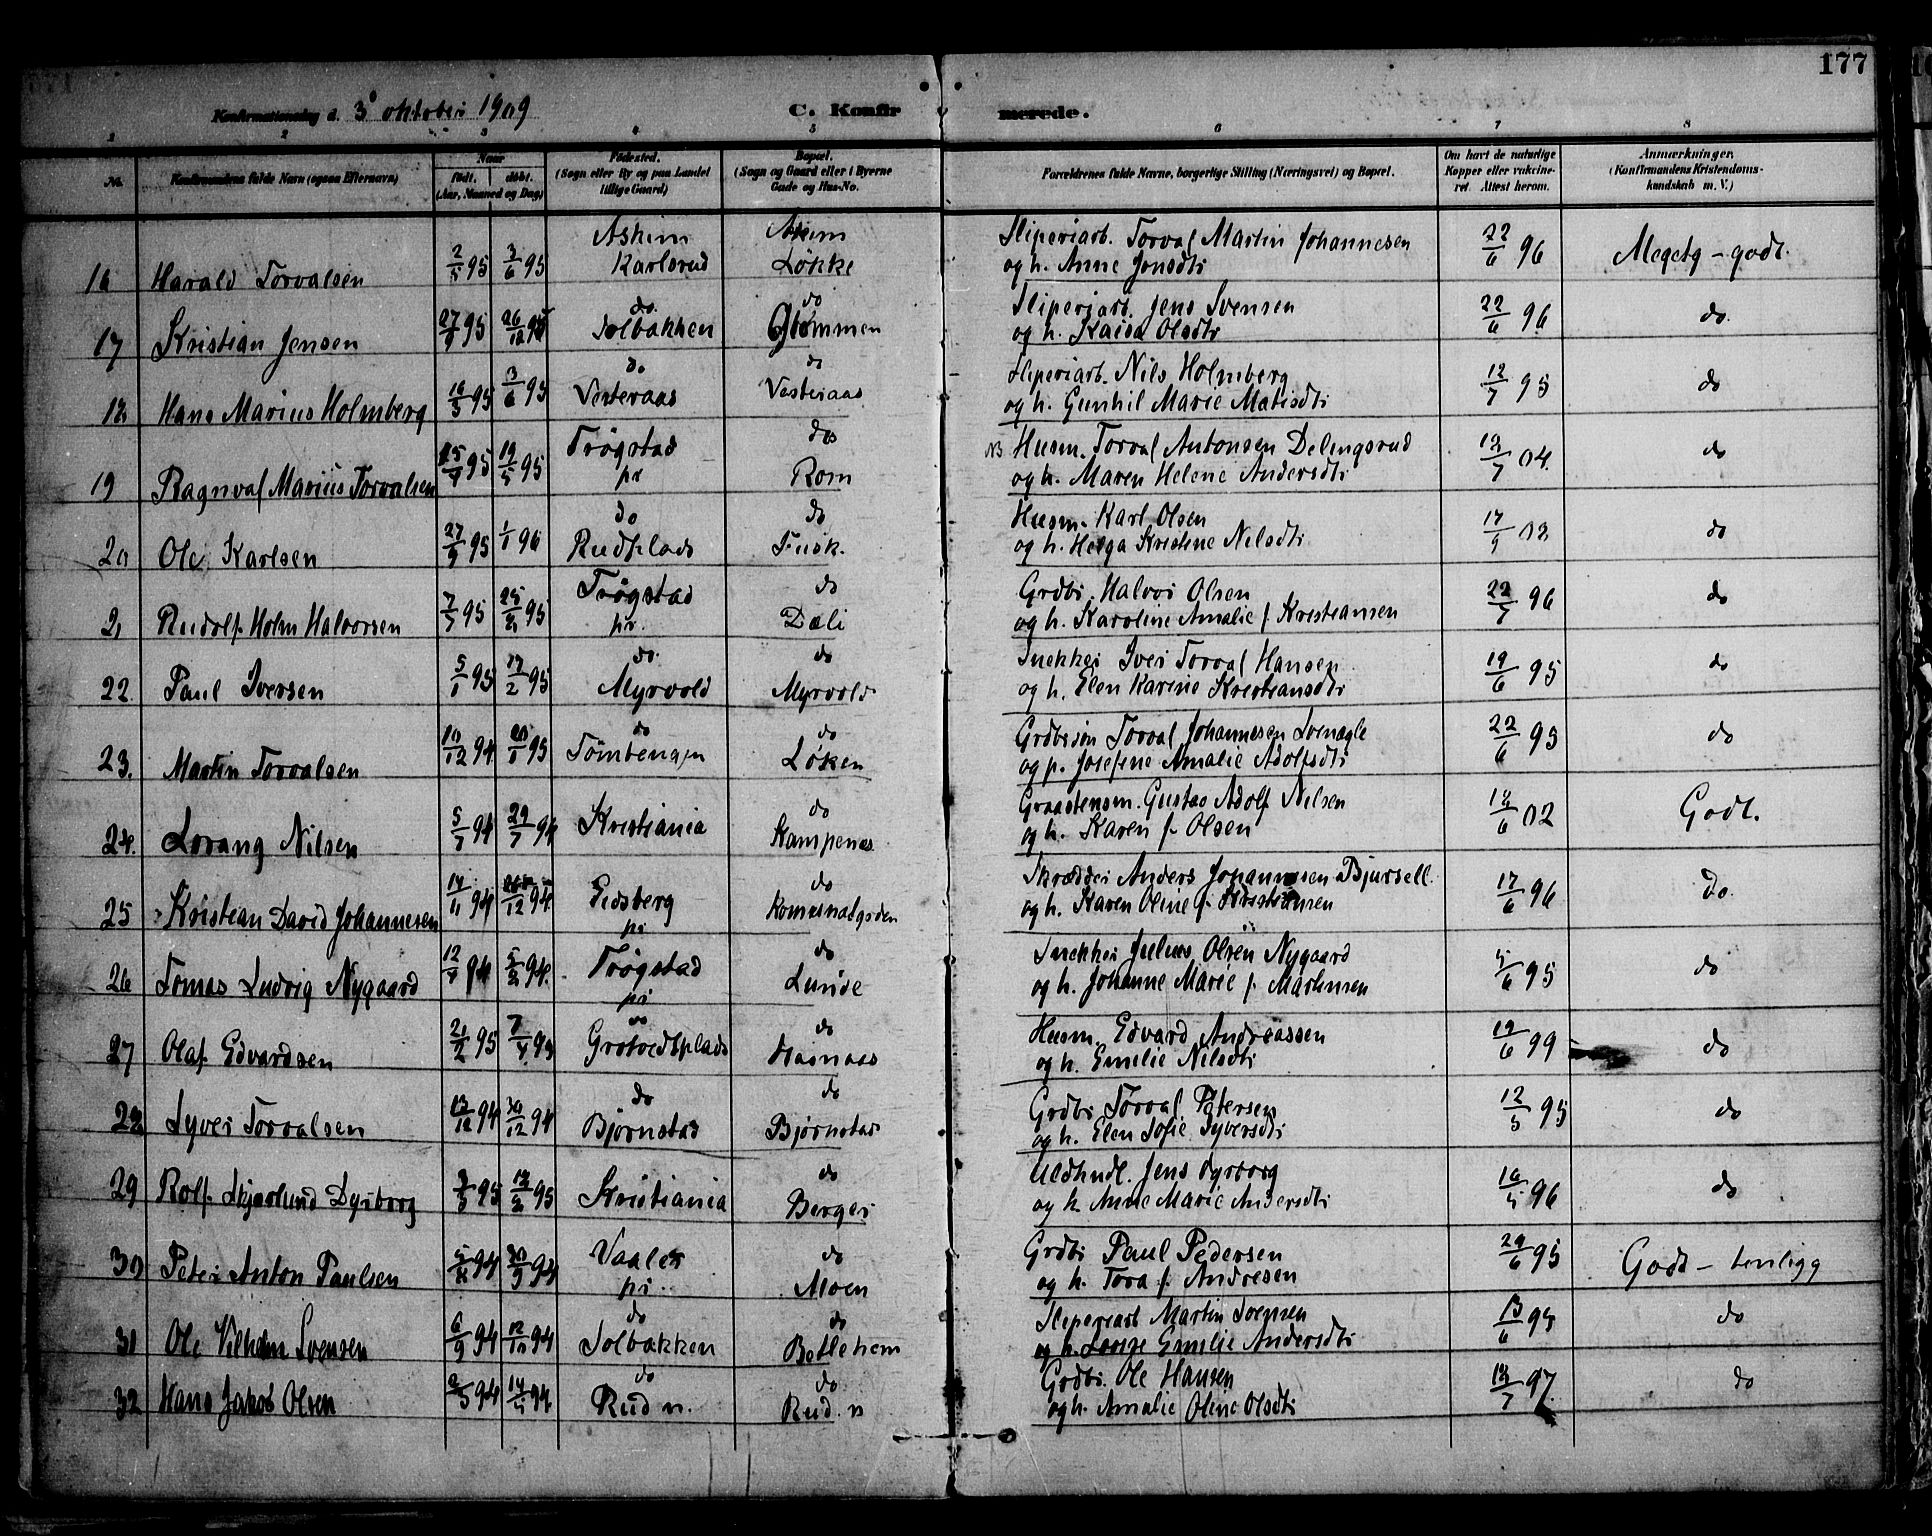 177
Konfirmationsdag d. 3 oktober 1909
C. Konfirmerede.
1 2 3 4 5 6 7 8
No.
Konfirmandens fulde Navn (ogsaa Efternavn)
Naar
født. døbt.
(Aar, Maaned og Dag)
Fødested.
(Sogn eller By og paa Landet
tillige Gaard)
Bopæl.
(Sogn og Gaard eller i Byerne
Gade og Hus-No.
Forældrenes fulde Navne, borgerlige Stilling (Næringsvei) og Bopæl.
Om havt de naturlige
Kopper eller vakcine-
ret. Attest herom.
Anmærkninger.
(Konfirmandens Kristendoms-
kundskab m. V.)
Askim Askim Sliperiarb. Torval Martin Johannesen
16 Harald Torvalsen 2/5 95 3/6 95 Karlsrud Løkke og h. Anne Jonsdtr 22/6 96 Megetg - godt.
do. do Sliperiarb. Jens Svensen
17 Kristian Jensen 27/9 95 26/12 95 Solbakken Glommen og h. Kaisa Olsdtr 22/6 96 do.
do do Sliperiarb. Nils Holmberg
18 Hans Marius Holmberg 16/5 95 3/6 95 Vesteraas Vesteraas og h. Gunhil Marie Matisdtr 12/7 95 do
Trøgstad do NB Husm. Torval Antonsen Delingsrud
19 Ragnval Marius Torvalsen 25/4 95 19/5 95 pr Rom og h. Maren Helene Andersdtr 18/7 04. do
do do Husm. Karl Olsen
20 Ole Karlsen 27/9 95 1/1 96 Rudplads Fusk. og h. Helga Kristine Nilsdtr 17/9 02 do
Trøgstad do Grdbr. Halvor Olsen
21 Rudolf Holm Halvorsen 7/7 95 25/8 95 pr. Dæli og h. Karoline Amalie f. Kristiansen 22/7 96 do
do. do Snekker Iver Torval Hansen
22. Paul Iversen 5/1 95 17/2 95 Myrvold Myrvold og h. Elen Karine Kristiansdtr 19/6 95 do
do do Grdbrsøn Torval Johannesen Svenægle
23. Martin Torvalsen 10/12 94 20/1 95 Tombengen Løken og p. Josefine Amalie Adolfsdtr 22/6 95 do
do Graastensm. Gustav Adolf Nilsen
24. Lorang Nilsen 5/7 94 29/7 94 Kristiania Kampenæs og h. Karen f. Olsen 18/6 02 Godt.
do Skrædder Anders Johannesen Bjursell.
25 Kristian David Johannesen 14/11 94 26/12 94 Eidsberg pr Komunalgrden og h. Karen Oline f. Kristiansen 17/6 96 do.
do Snekker Julius Olsen Nygaard
26 Tomas Ludvig Nygaard 12/7 94 5/8 94. Trøgstad pr Lunde og h. Johanne Marie f. Martinsen 5/6 95 do
do do Husm. Edvard Andreassen
27 Olaf Edvardsen 21/2 95 7/4 95 Grotvedtplads Haanaas og h. Emilie Nilsdtr 19/6 99 do
do do Grdbr Torval Petersen
28 Syver Torvalsen 13/12 94 30/12 94 Bjørnstad Bjørnstad og h. Elen Sofie Syversdtr 12/5 95 do
do Uldhndl. Jens Dyrborg
29 Rolf Skjørlund Dyrborg 3/3 95 Kristiania Berger og h Anne Marie Andersdtr 16/5 96 do
Vaaler do Grdbr Paul Pedersen
30 Peter Anton Paulsen 5/8 94 30/9 94 pr. Moen og h. Tora f. Andresen 29/6 95 Godt - temligg
do do Sliperiarb Martin Svensen
31 Ole Vilhelm Svensen 6/9 94 12/10 94 Solbakken Betlehem og h. Lovise Emilie Andersdtr 13/6 95 do
do do Grdbr. Ole Hansen
32 Hans Jakob Olsen 2/3 94 14/4 94 Rud n. Rud. n og h. Amalie Oline Olsdtr 18/7 97. do